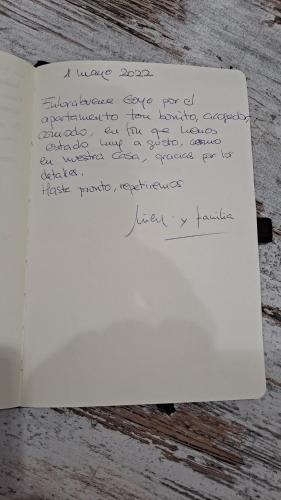 1 mayo 2022
Enhorabuena Goyo por el
apartamento tan bonito, acogedor,
cómodo, en fin que hemos
estado muy a gusto, como
en nuestra casa, gracias por los
detalles.
Hasta pronto, repetiremos
y familia